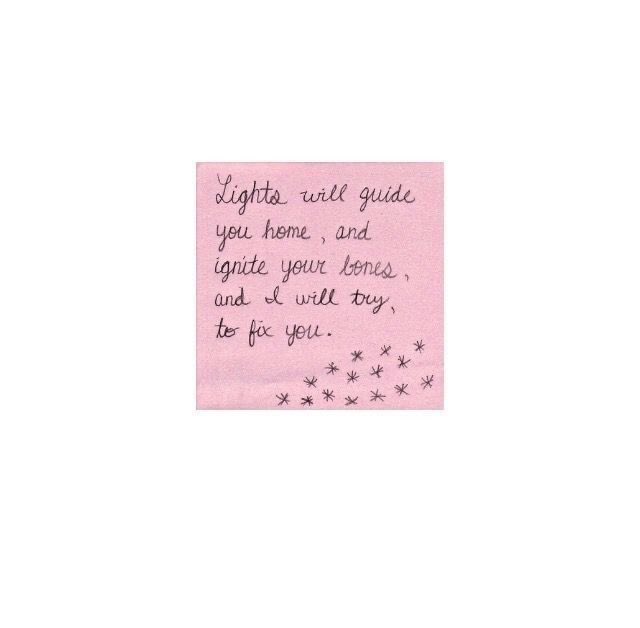 Lights will guide
you home, and
ignite your bones,
and I will try,
to fix you.